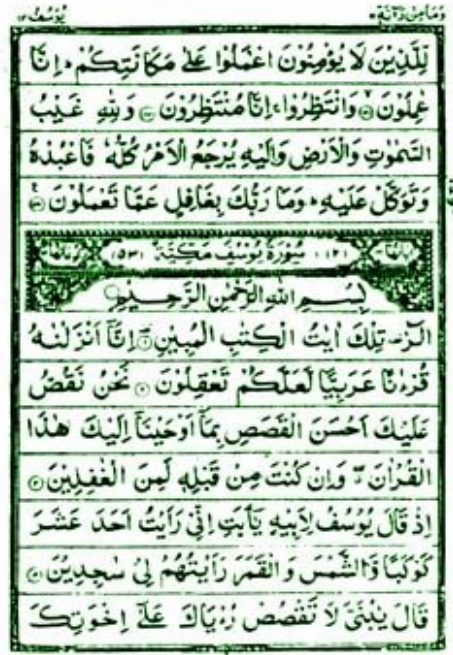 وَمَا مِنْ دَآبَّةٍ ١٢ يُوسُفَ ١٢
لِّلَّذِيْنَ لَا يُؤْمِنُوْنَ اعْمَلُوْا عَلٰى مَكَانَتِكُمْ ۭ اِنَّا
عٰمِلُوْنَ ۝ وَانْتَظِرُوْا ۚ اِنَّا مُنْتَظِرُوْنَ ۝ وَلِلّٰهِ غَيْبُ
السَّمٰوٰتِ وَالْاَرْضِ وَاِلَيْهِ يُرْجَعُ الْاَمْرُ كُلُّهٗ فَاعْبُدْهُ
وَتَوَكَّلْ عَلَيْهِ ۭ وَمَا رَبُّكَ بِغَافِلٍ عَمَّا تَعْمَلُوْنَ ۝
(١٢) سُوْرَةُ يُوْسُفَ مَكِّيَّةٌ (٥٣)
بِسْمِ اللهِ الرَّحْمٰنِ الرَّحِيْمِ
الٓرٰ ۣ تِلْكَ اٰيٰتُ الْكِتٰبِ الْمُبِيْنِ ۝ اِنَّآ اَنْزَلْنٰهُ
قُرْءٰنًا عَرَبِيًّا لَّعَلَّكُمْ تَعْقِلُوْنَ ۝ نَحْنُ نَقُصُّ
عَلَيْكَ اَحْسَنَ الْقَصَصِ بِمَآ اَوْحَيْنَآ اِلَيْكَ هٰذَا
الْقُرْاٰنَ ۖ وَاِنْ كُنْتَ مِنْ قَبْلِهٖ لَمِنَ الْغٰفِلِيْنَ ۝
اِذْ قَالَ يُوْسُفُ لِاَبِيْهِ يٰٓاَبَتِ اِنِّىْ رَاَيْتُ اَحَدَ عَشَرَ
كَوْكَبًا وَّالشَّمْسَ وَالْقَمَرَ رَاَيْتُهُمْ لِىْ سٰجِدِيْنَ ۝
قَالَ يٰبُنَىَّ لَا تَقْصُصْ رُءْيَاكَ عَلٰٓى اِخْوَتِكَ